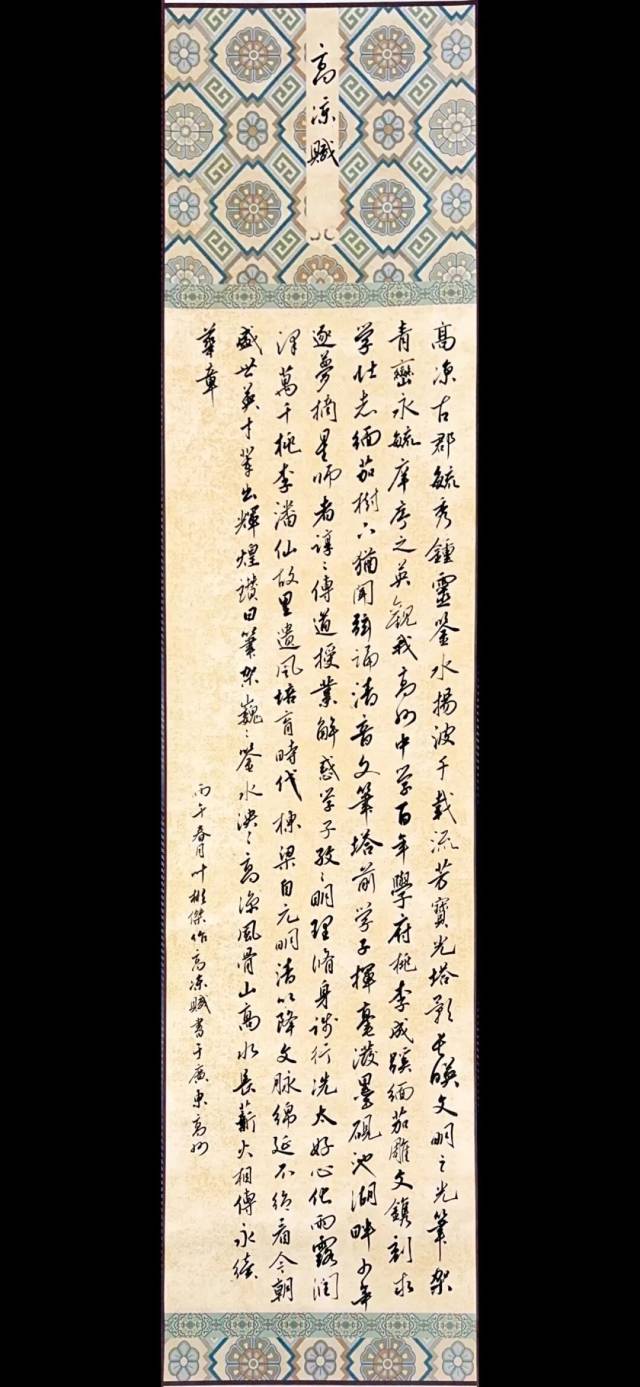 高凉赋
高凉古郡毓秀鍾靈鉴水揚波千載流芳寶光塔影長暎文明之光筆架
青巒永毓庠序之英觀我高州中学百年學府桃李成蹊缅茄雕文鐫刻求
学壮志缅茄樹下猶聞弦诵清音文筆塔前学子揮毫潑墨硯池湖畔少年
逐夢摘星师者諄〻傳道授業解惑学子孜〻明理脩身践行冼太好心化雨露润
泽萬千桃李潘仙故里遺风培育時代棟梁自元明清以降文脉綿延不绝看今朝
盛世英才輩出輝煌讚曰筆架巍〻鉴水泱〻高凉風骨山高水長薪火相傳永續
華章
丙午春月叶 傑作高凉赋書于廣東高州